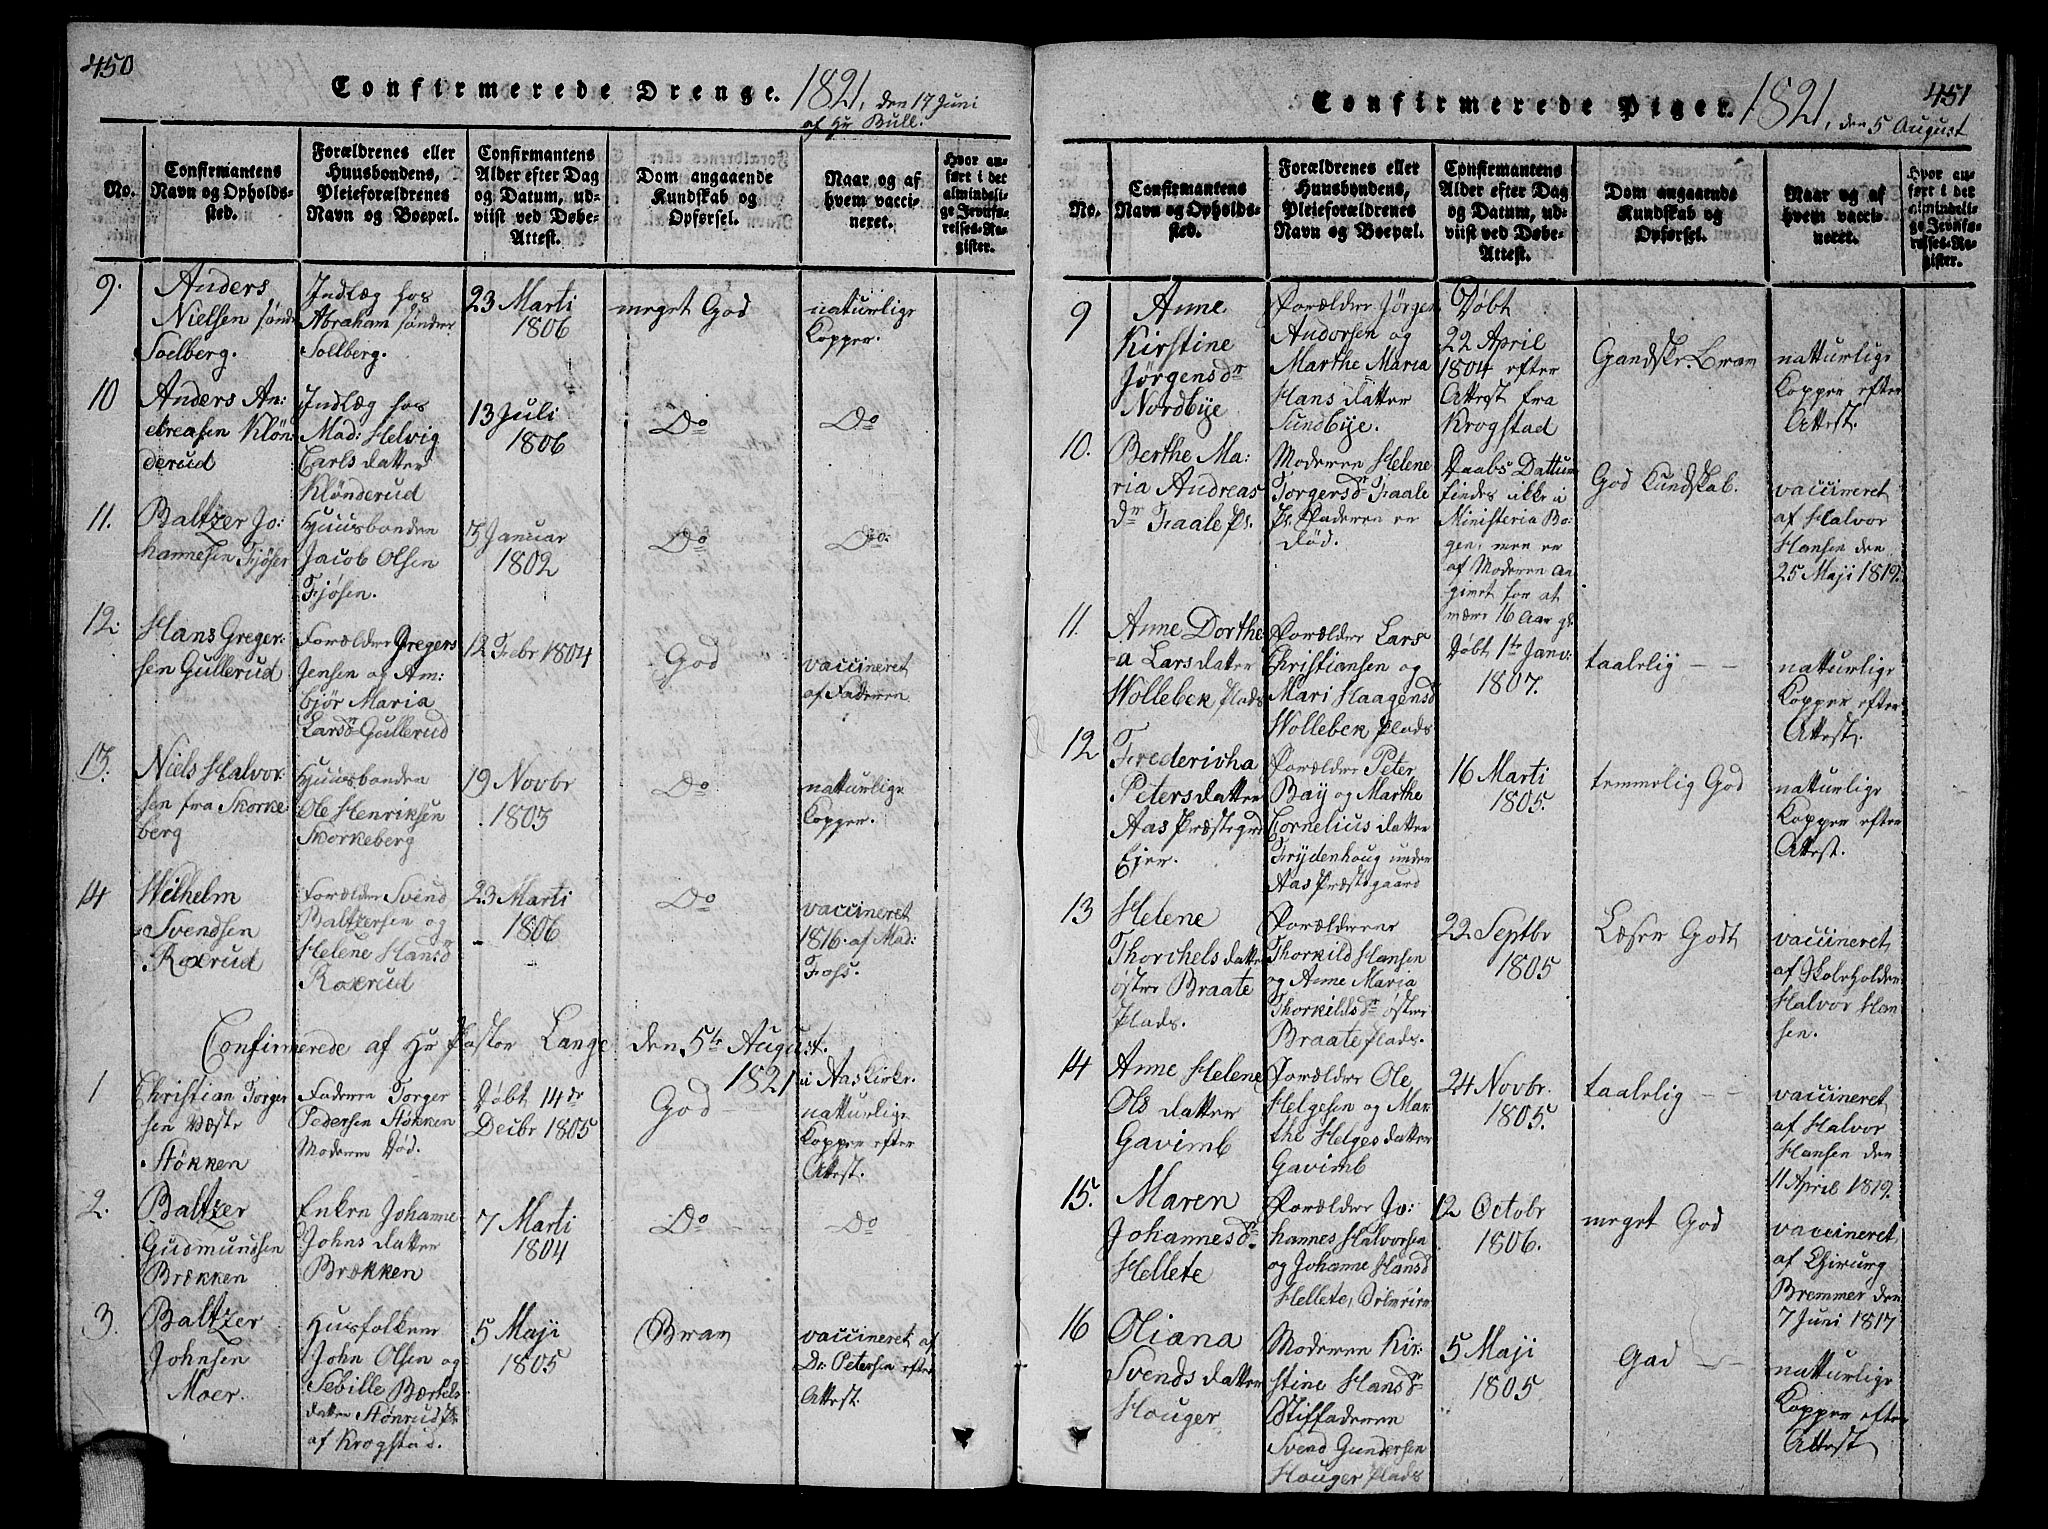 450
Confirmerede Drenge. 1821, den 17 Juni
af Hr Bull.
No.
Confirmantens
Navn og Opholds-
sted.
Forældrenes eller
Huusbondens,
Pleieforældrenes
Navn og Boepæl.
Confirmantens
Alder efter Dag
og Datum, ud-
viist ved Døbe-
Attest.
Dom angaaende
Kundskab og
Opførsel.
Naar og af
hvem vacci-
neret.
Hvor an-
ført i det
almindeli-
ge Jevnfø-
relses-Re-
gister.
9.
Anders
Nielsen sønder
Soelberg.
Indlæg hos
Abraham sønder
Sollberg.
23 Marti
1806
meget God
naturlige
Kopper.
10
Anders An:
dreasen Kløn:
derud
Indlæg hos
Mad: Helvig
Carls datter
Klønderud
13 Juli
1806
Do
Do
11.
Baltzer Jo:
hannesen Fjøser
Huusbonden
Jacob Olsen
Fjøsen.
3 Januar
1802
Do
Do
12:
Hans Greger:
sen Gullerud
Forælder Gregers
Jensen og Am:
bjør Maria
Larsdr Gullerud
12 Febr 1804
God
vaccineret
af Faderen
13.
Niels Halvor:
sen fra Skorke
berg
Huusbonden
Ole Henriksen
Skorkeberg
19 Novbr
1803
Do
natturlige
Kopper.
14
Wilhelm
Svendsen
Roxrud
Forælder Svend
Baltzersen og
Helene Hansdr
Roxrud
23 Marti
1806
Do
vaccineret
1816 af Mad:
Foss.
Confirmerede af Hr Pastor Lange den 5te August
1821 i Aas Kirke.
1
Christian Torger
sen Væste
Støkken
Faderen Torger
Pedersen Støkken
Moderen Død.
Døbt 14de
Decbr 1805
God
natturlige
Kopper efter
Attest.
2.
Baltzer
Gudmundsen
Brækken
Enken Johanne
Johns datter
Brækken
7 Marti
1804
Do
Do
3.
Baltzer
Johnsen
Moer.
Husfolkene
John Olsen og
Sebille Bærtels
datter Stønrud Pl:
af Krogstad.
5 Maji
1805
Brav
vaccineret af
Dr. Petersen efter
Attest.
451
Confirmerede Piger. 1821, den 5 August
No.
Confirmantens
Navn og Opholds-
sted.
Forældrenes eller
Huusbondens,
Pleieforældrenes
Navn og Boepæl.
Confirmantens
Alder efter Dag
og Datum, ud-
viist ved Døbe-
Attest.
Dom angaaende
Kundskab og
Opførsel.
Naar og af
hvem vacci-
neret.
Hvor an-
ført i det
almindeli-
ge Jevnfø-
relses-Re-
gister.
9
Anne
Kirstine
Jørgensdr
Nordbye
Forælder Jørgen
Andorsen og
Marthe Maria
Hans datter
Sundbye.
Døbt
22 April
1804 efter
Attest fra
Krogstad
Gandske Brav
natturlige
Kopper efter
Attest.
10.
Berthe Ma:
ria Andreas
dr Faale Pl.
Moderen Helene
Torgersdr Faale
Pl. Faderen er
Død.
Daabs Dattum
findes ikke i
Ministeria Bo:
gen, men er
af Moderen an
givet for at
være 16 Aar gl.
God Kundskab.
vaccineret
af Halvor
Hansen den
25 Maji 1819.
11.
Anne Dorthe
a Lars datter
Wollebek Plads
Forælder Lars
Christiansen og
Mari Haagensdr
Wollebek Plads
Døbt 1te Janv:
1807.
taalelig - -
natturlige
Kopper efter
Attest.
12
Fredericha
Peters datter
Aas Præstegrd
Ejer.
Forælder Peter
Bay og Marthe
Cornelius datter
Frydenhoug under
Aas Præstegaard
16 Marti
1805.
temmelig God
natturlige
Kopper efter
Attest.
13
Helene
Thorchels datter
øster Braate
Plads.
Forælderne
Thorkild Hansen
og Anne Maria
Thorkildsdr øster
Braate Plads.
22 Septbr
1805
Læser Godt
vaccineret
af Skoleholder
Halvor Han
sen.
14
Anne Helene
Ols datter
Gavimb
Forælder Ole
Helgesen og Mar:
the Helges datter
Gavimb
24 Novbr.
1805.
taalelig - -
vaccineret
af Halvor
Hansen den
11 April 1819.
15.
Maren
Johannesdr
Hellete
Forælder Jo:
hannes Halvorsen
og Johanne Hansd
Hellete,
12 Octobr
1806.
meget God
vaccineret
af Chirurg
Bremmer den
7 Juni 1817
16
Oliana
Svends datter
Houger
Moderen Kir:
stine Hansdr
Stiffaderen
Svend Gundersen
Houger Plads
5 Maji
1805.
God - -
natturlige
Kopper efter
Attest